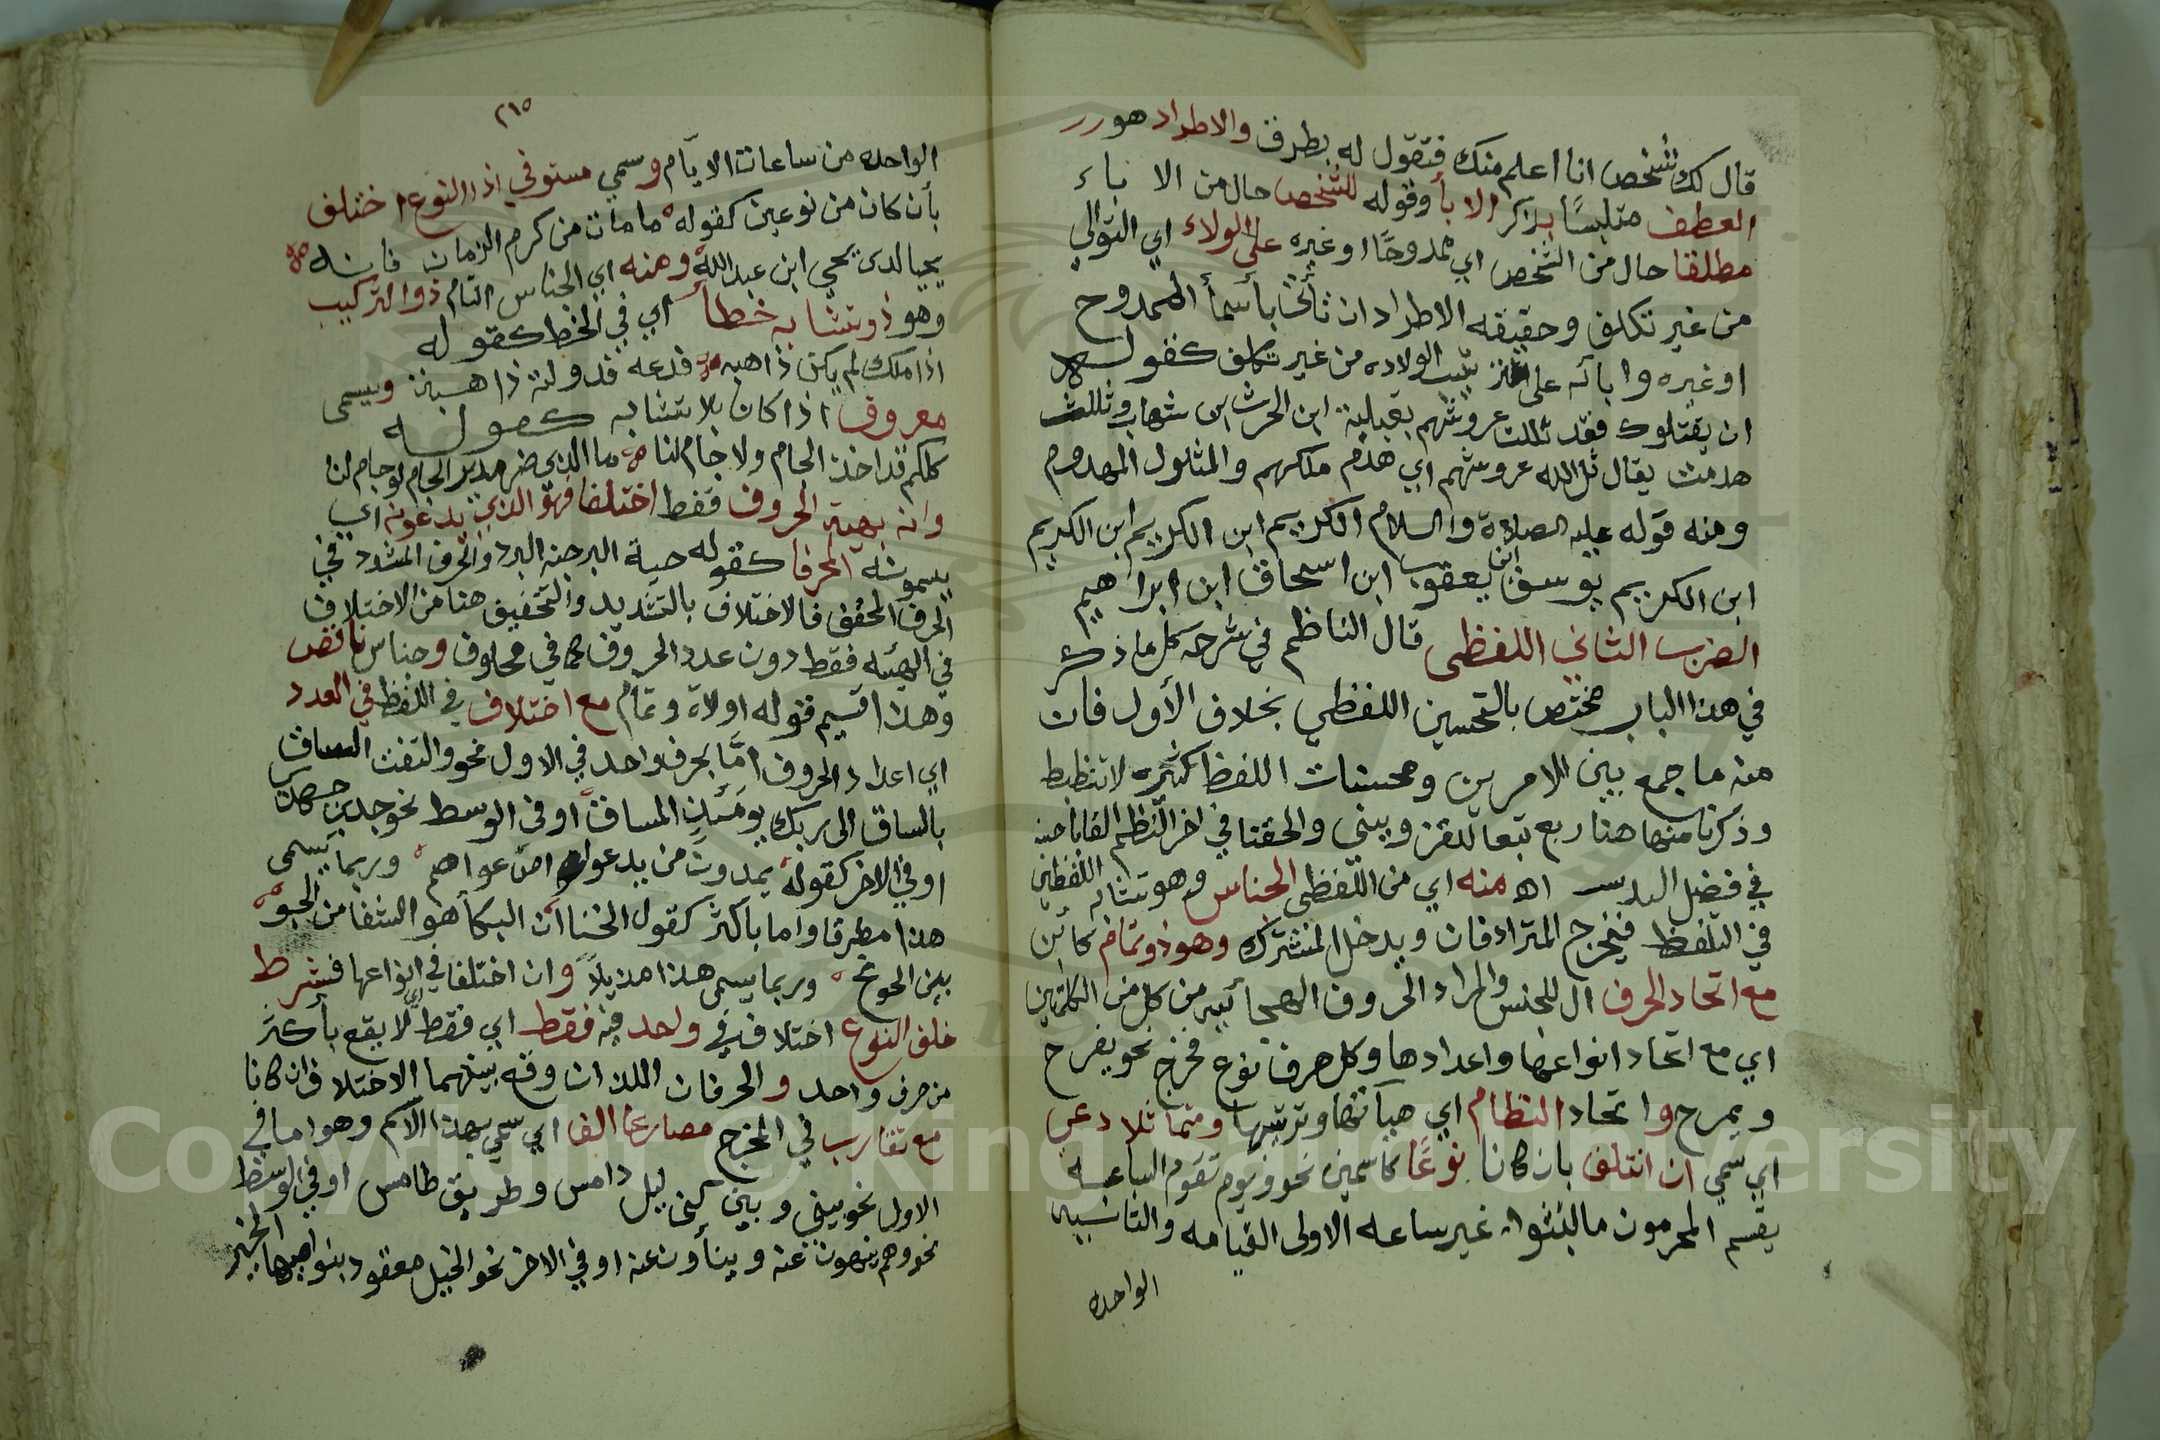 قال لك شخص انا اعلم منك فتقول له بطرف والاطراد هو
العطف متلبسًا بذكر الابا وقوله للشخص حال من الاباء
مطلقا حال من الشخص اي ممدوحًا او غيره على الولاء اي التوالي
من غير تكلف وحقيقه الاطراد ان تأتي بأسمأ الممدوح
او غيره وابائه على ترتيب الولاده من غير تكلف كقوله
ان يقتلوك فقد ثللت عروشهم بعتيبة ابن الحرث ابن شهاب وثللت
هدمت يقال ثل الله عروشهم اي هدم ملكهم والمثلول المهدوم
ومنه قوله عليه الصلاة والسلام الكريم ابن الكريم ابن الكريم
ابن الكريم يوسف ابن يعقوب ابن اسحاق ابن ابراهيم
الضرب الثاني اللفظي قال الناظم في شرحه كل ما ذكر
في هذا الباب مختص بالتحسين اللفظي بخلاف الأول فان
منه ما جمع بين الامرين ومحسنات اللفظ كثيره لا تنظبط
وذكرنا منها هنا ربع تبعا للقز ويني والحقنا في اخر النظم القابا حسنه
في فضل اه منه اي من اللفظي الجناس وهو تشابه اللفظين
في التلفظ فيخرج المترادفان ويدخل المشترك وهو ذو تمام كائن
مع اتحاد الحرف ال للجنس والمراد الحروف الهجائيه من كل من الكلمتين
اي مع اتحاد انواعها واعدادها وكل حرف نوع فخرج نحو يفرح
ويمرح واتحاد النظام اي هيآتها وترتيبها ومتماثلا دعي
اي سمي ان ائتلف بان كانا نوعًا كاسمين نحو ويوم تقوم الساعه
يقسم المجرمون ما لبثوا غير ساعه الاولى القيامه والثانيه
الواحده
٢١٥
الواحده من ساعات الايّام وسمي مستوفي اذا النوع اختلف
بأن كان من نوعين كقوله ما مات من كرم الزمان فانه
يحيا لدى يحيى ابن عبد الله ومنه اي الجناس التام ذو التركيب
وهو ذو تشابه خطا أي في الخط كقوله
اذا ملك لم يكن ذا هبه فدعه فدولته ذاهبة ويسمى
مفروق اذا كان بلا تشابه كقوله
كلكم قد اخذ الجام ولا جام لنا ما الذي ضر مدير الجام لو جام لنا
وان بهية الحروف فقط اختلفا فهو الذي يدعونه اي
يسمونه المحرفا كقوله جبة البرد جنة البرد والحرف المشدد في
الحرف المخفف فالاختلاف بالتشديد والتخفيف هنا من الاختلاف
في الهيئه فقط دون عدد الحروف كما في محاوف وجناس ناقص
وهذا قسيم قوله اولا وتمام مع اختلاف في اللفظ في العدد
اي اعداد الحروف امّا بحرف واحد في الاول نحو والتفت الساق
بالساق الى ربك يومئذ المساق او في الوسط نحو جدي جهدي
او في الاخر كقوله يمدون من يد عواص عواصم وربما يسمى
هذا مطرفا واما بأكثر كقول الخنسا ان البكأ هو الشفا من الجوى
بين الجوانح وربما يسمى هذا مذيلاً وان اختلفا في انواعها فشرط
خلف النوع اختلاف في واحد فيه فقط اي فقط لا يقع بأكثر
من حرف واحد والحرفان اللذان وقع بينهما الاختلاف ان كانا
مع تقارب في المخرج مضارعا الفا اي سمي بهذا الاسم وهو اما في
الاول نحو بيني وبين كني ليل دامس وطريق طامس او في الوسط
نحو وهم ينهون عنه وينأون عنه او في الاخر نحو الخيل معقود بنواصيها الخير
Copyright © King Saud University